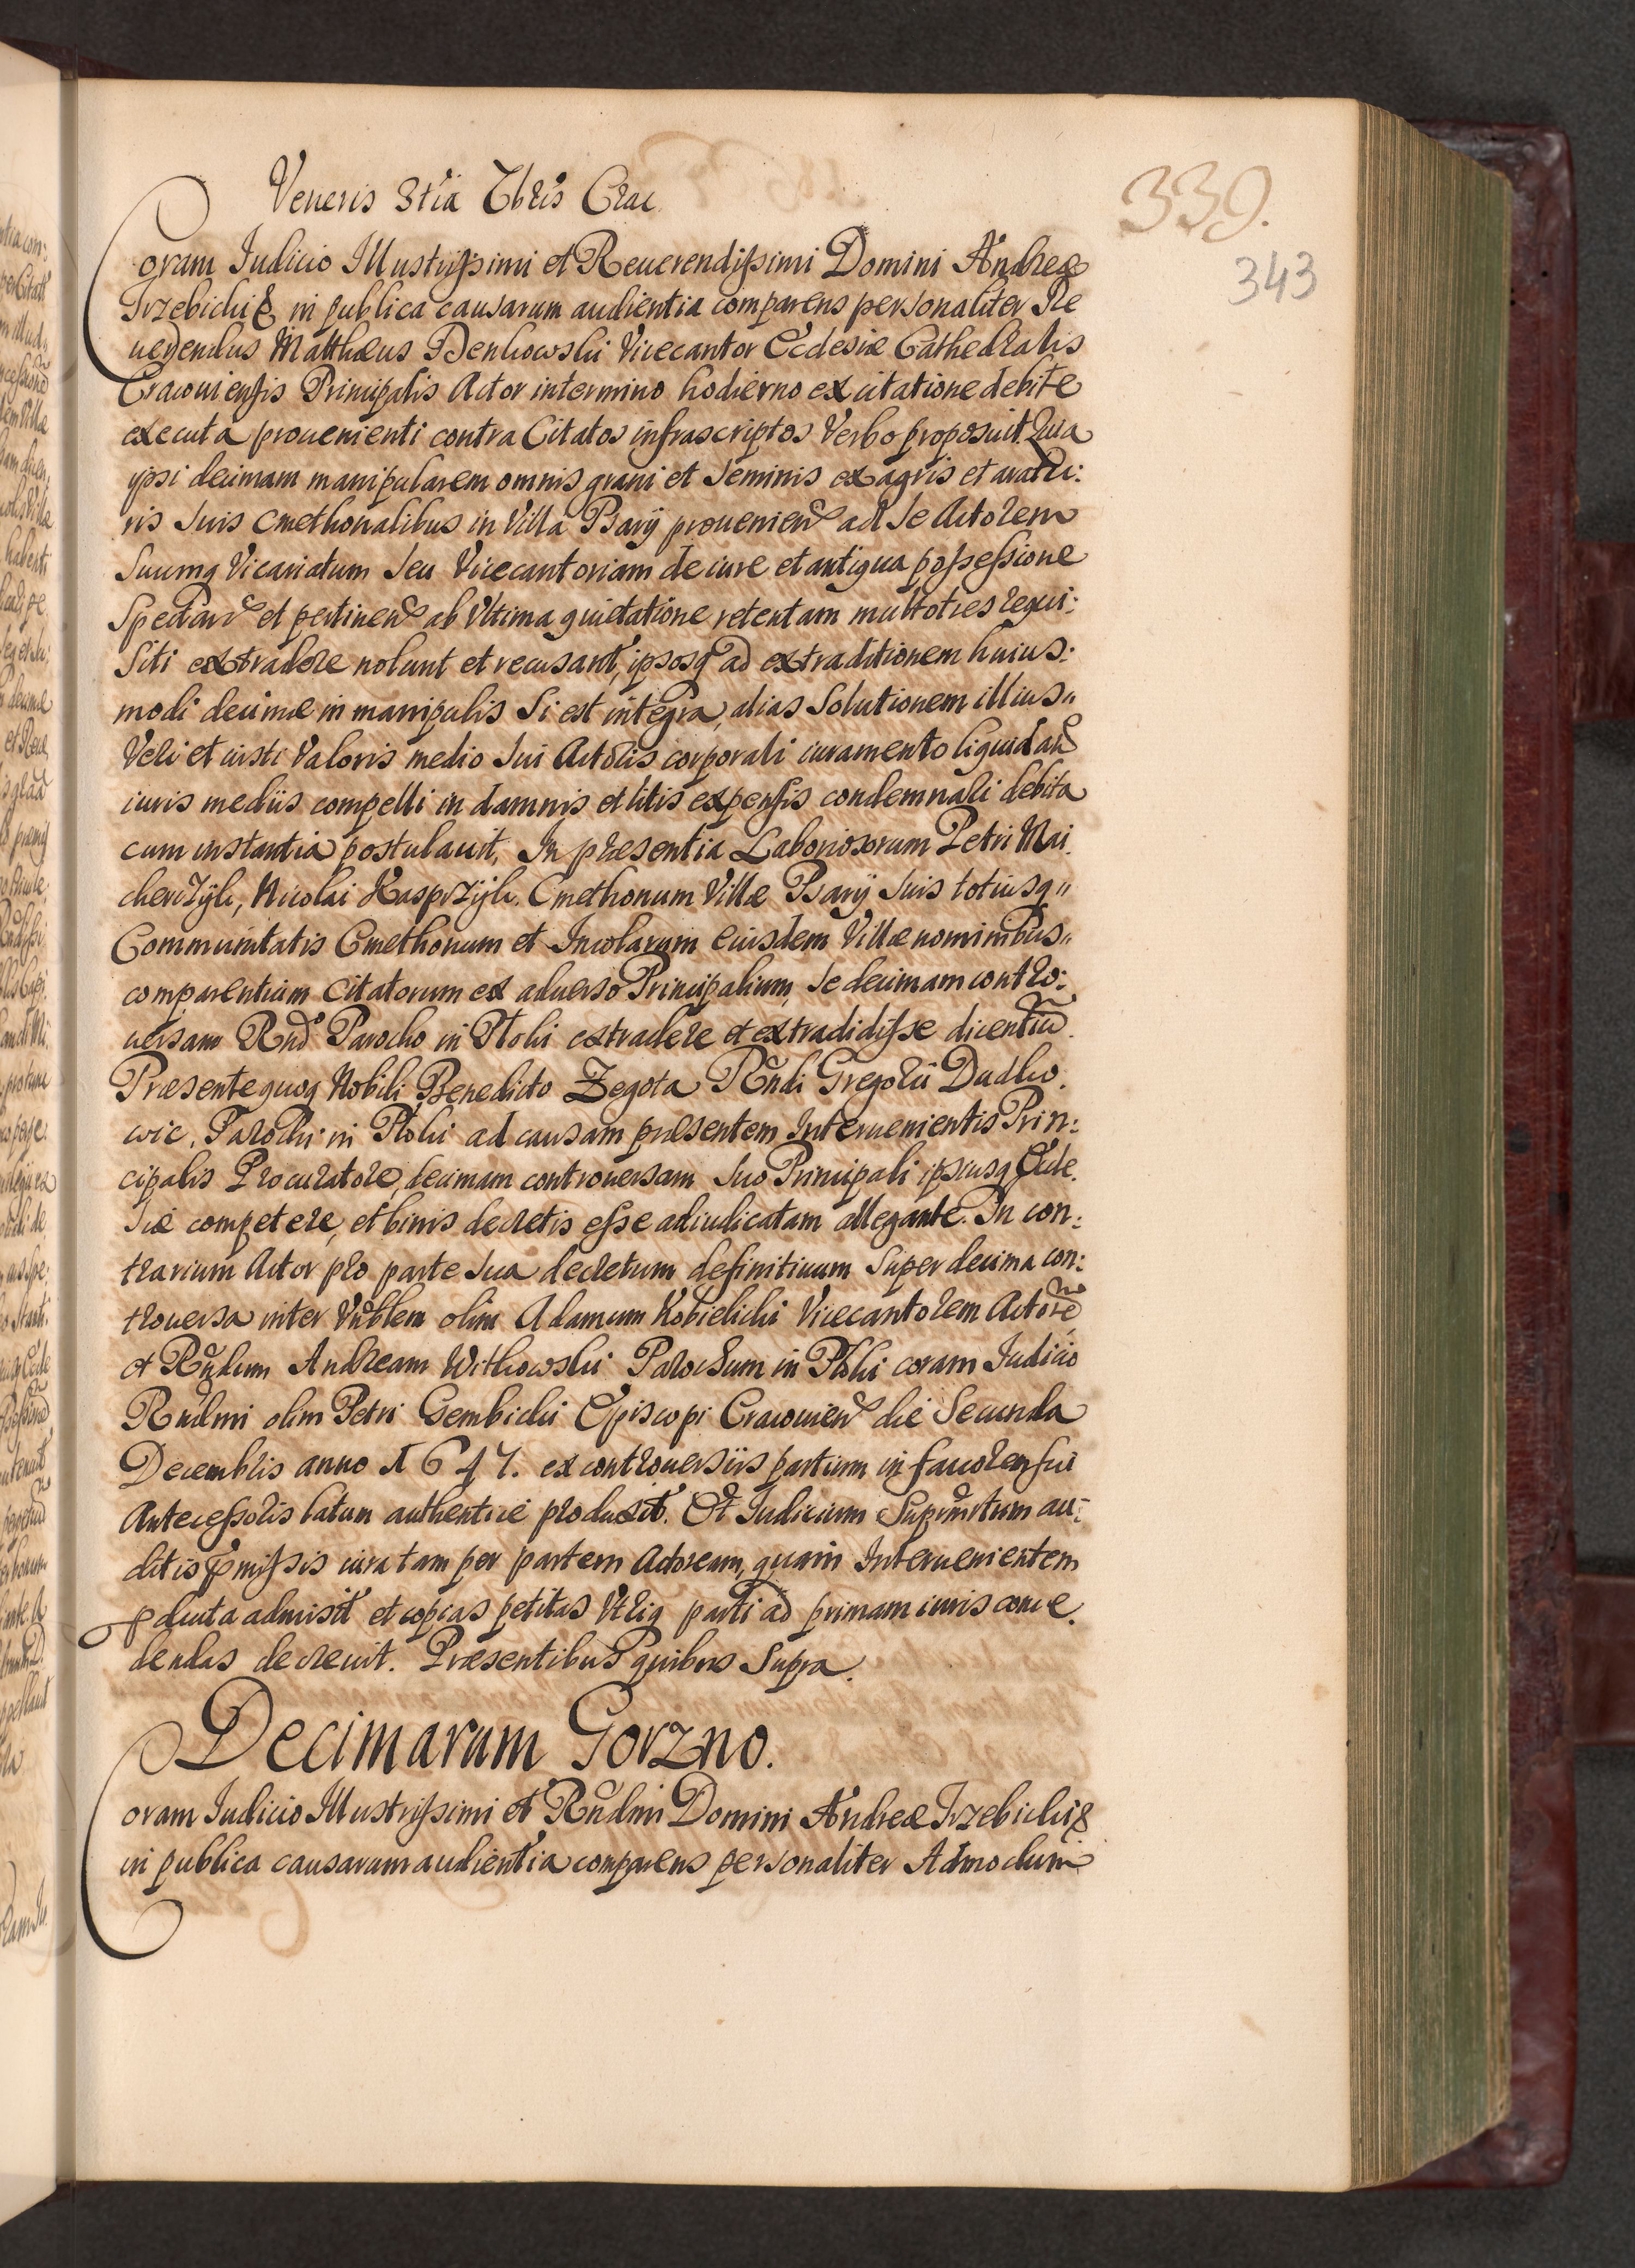 339.
343
Veneris 3tia 7bris Crac
Coram Iudicio Illustrissimi et Reuerendissimi Domini Andreæ
Trzebicki & in publica causarum audientia comparens personaliter Re
uerendus Matthæus Benkowski Vicecantor Ecclesiæ Cathedralis
Cracouiensis Principalis Actor in termino hodierno ex citatione debite
executa prouenienti contra Citatos infrascriptos Verbo proposuit. Quia
ipsi decimam manipularem omnis grani et seminis ex agris et aratu:
ris suis Cmethonalibus in Villa Psary prouenien ad se Actorem
suumq Vicariatum seu Vicecantoriam de iure et antiqua possessione
spectan et pertinen ab Vltima quietatione retentam multoties requi:
siti extradere nolunt et recusant, ipsosq ad extraditionem huius:
modi decimæ in manipulis si est integra, alias solutionem illius"
Veri et iusti Valoris medio sui Actoris corporali iuramento liquidan
iuris mediis compelli in damnis et litis expensis condemnari debita
cum instantia postulauit. In præsentia Laboriosorum Petri Mai
cherczyk, Nicolai Kasprzyk. Cmethonum Villæ Psary suis totiusq"
Communitatis Cmethonum et Incolarum eiusdem Villæ nominibus"
comparentium Citatorum ex aduerso Principalium, se decimam contro:
uersam Rnd Parocho in Ploki extradere et extradidisse dicentiu.
Præsente quoq Nobili Benedicto Zegota Rndi Gregorii Dudko.
wic, Parochi in Ploki ad causam præsentem Interuenientis Prin:
cipalis Procuratore, decimam controuersam suo Principali ipsiusq Eccle.
siæ competere, et binis decretis esse adiudicatam allegante. In con:
trarium Actor pro parte sua decretum definitiuum super decima con:
trouersa inter Vnblem olim Adamum Kobielicki Vicecantorem Actore
et Rndum Andream Witkowski Parochum in Ploki coram Iudicio
Rndmi olim Petri Gembicki Episcopi Cracouien die Secunda
Decembris anno 1647. ex controuersiis partium in fauorem sui
Antecessoris latum authentice produxit. Et Iudicium Suprmtum au:
ditis pmissis iura tam per partem Actoream, quam Interuenientem
pducta admisit et copias petitas Vtriq parti ad primam iuris conce.
dendas decreuit. Præsentibus quibus supra.
Decimarum Gorzno.
Coram Iudicio Illustrissimi et Rndmi Domini Andreæ Trzebicki &
in publica causarum audientia comparens personaliter Admodum